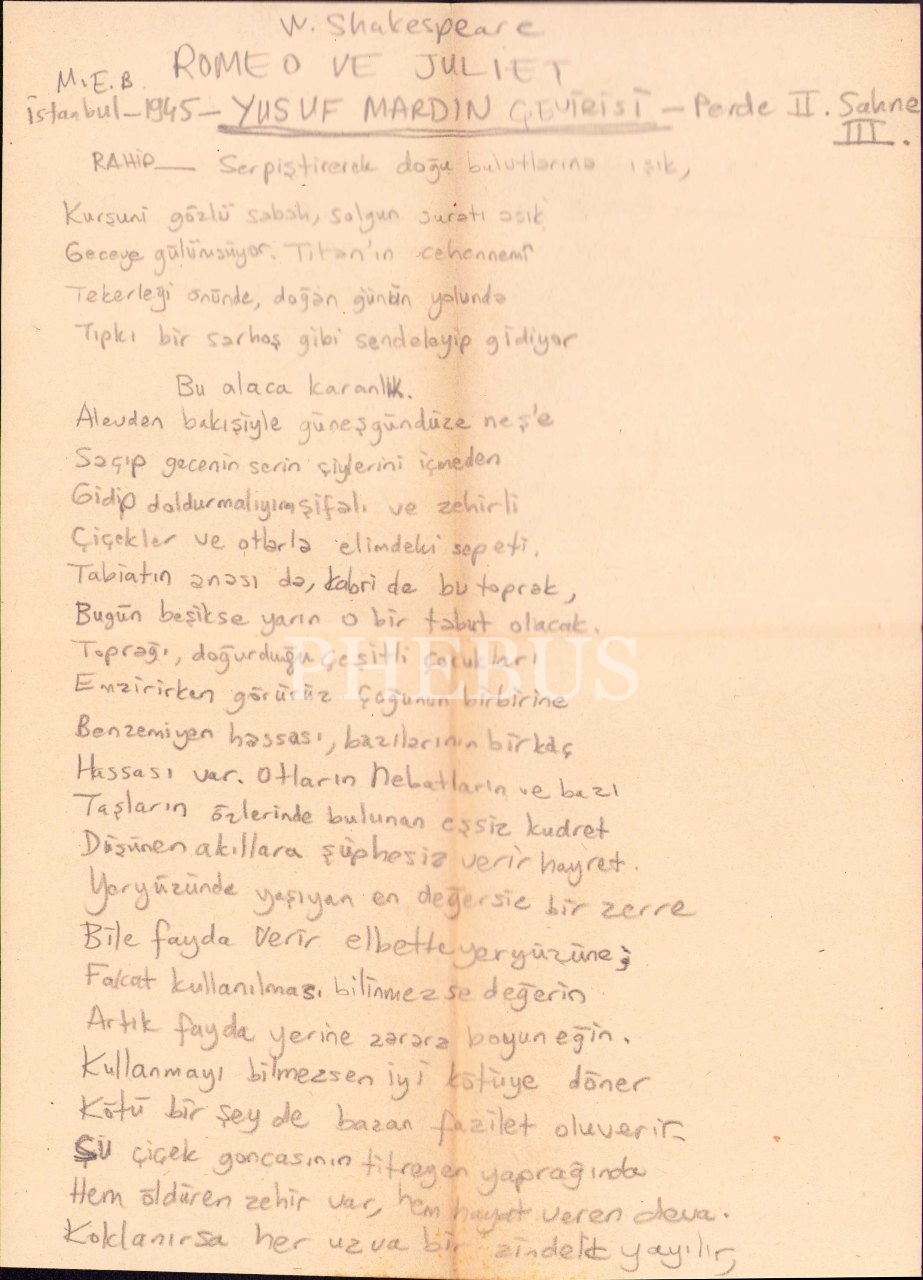 W. Shakespeare
ROMEO VE JULİET
M.E.B.
İstanbul-1945- YUSUF MARDİN ÇEVİRİSİ - Perde II. Sahne III.
RAHİP— Serpiştirerek doğu bulutlarına ışık,
Kurşuni gözlü sabah, solgun suratı asık
Geceye gülümsüyor. Titan'ın cehennemî
Tekerleği önünde, doğan günün yolunda
Tıpkı bir sarhoş gibi sendeleyip gidiyor
Bu alaca karanlık.
Alevden bakışiyle güneş gündüze neş'e
Saçıp gecenin serin çiylerini içmeden
Gidip doldurmalıyım şifalı ve zehirli
Çiçekler ve otlarla elimdeki sepeti.
Tabiatın anası da, kabri de bu toprak,
Bugün beşikse yarın o bir tabut olacak.
Toprağı, doğurduğu çeşitli çocukları
PHEBUS
Emzirirken görürüz çoğunun birbirine
Benzemiyen hassası, bazılarının birkaç
Hassası var. Otların Nebatların ve bazı
Taşların özlerinde bulunan eşsiz kudret
Düşünen akıllara şüphesiz verir hayret.
Yeryüzünde yaşıyan en değersiz bir zerre
Bile fayda verir elbette yeryüzüne;
Fakat kullanılması bilinmezse değerin
Artık fayda yerine zarara boyun eğin.
Kullanmayı bilmezsen iyi kötüye döner
Kötü bir şey de bazan fazilet oluverir.
Şu çiçek goncasının titreyen yaprağında
Hem öldüren zehir var, hem hayat veren deva.
Koklanırsa her uzva bir zindelik yayılır,